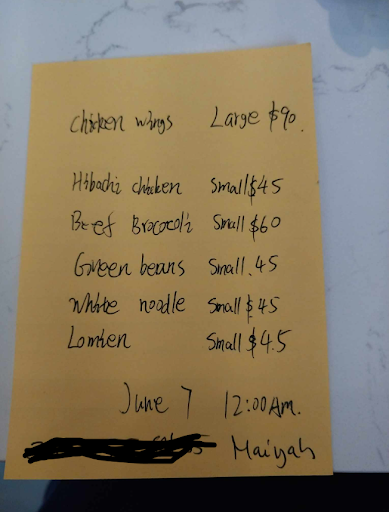 Chicken wings Large $90.
Hibachi chicken Small $45
Beef Brococoli Small $60
Green beans Small. 45
White noodle Small $45
Lomien Small $4.5
June 7 12:00 AM.
Maiyah